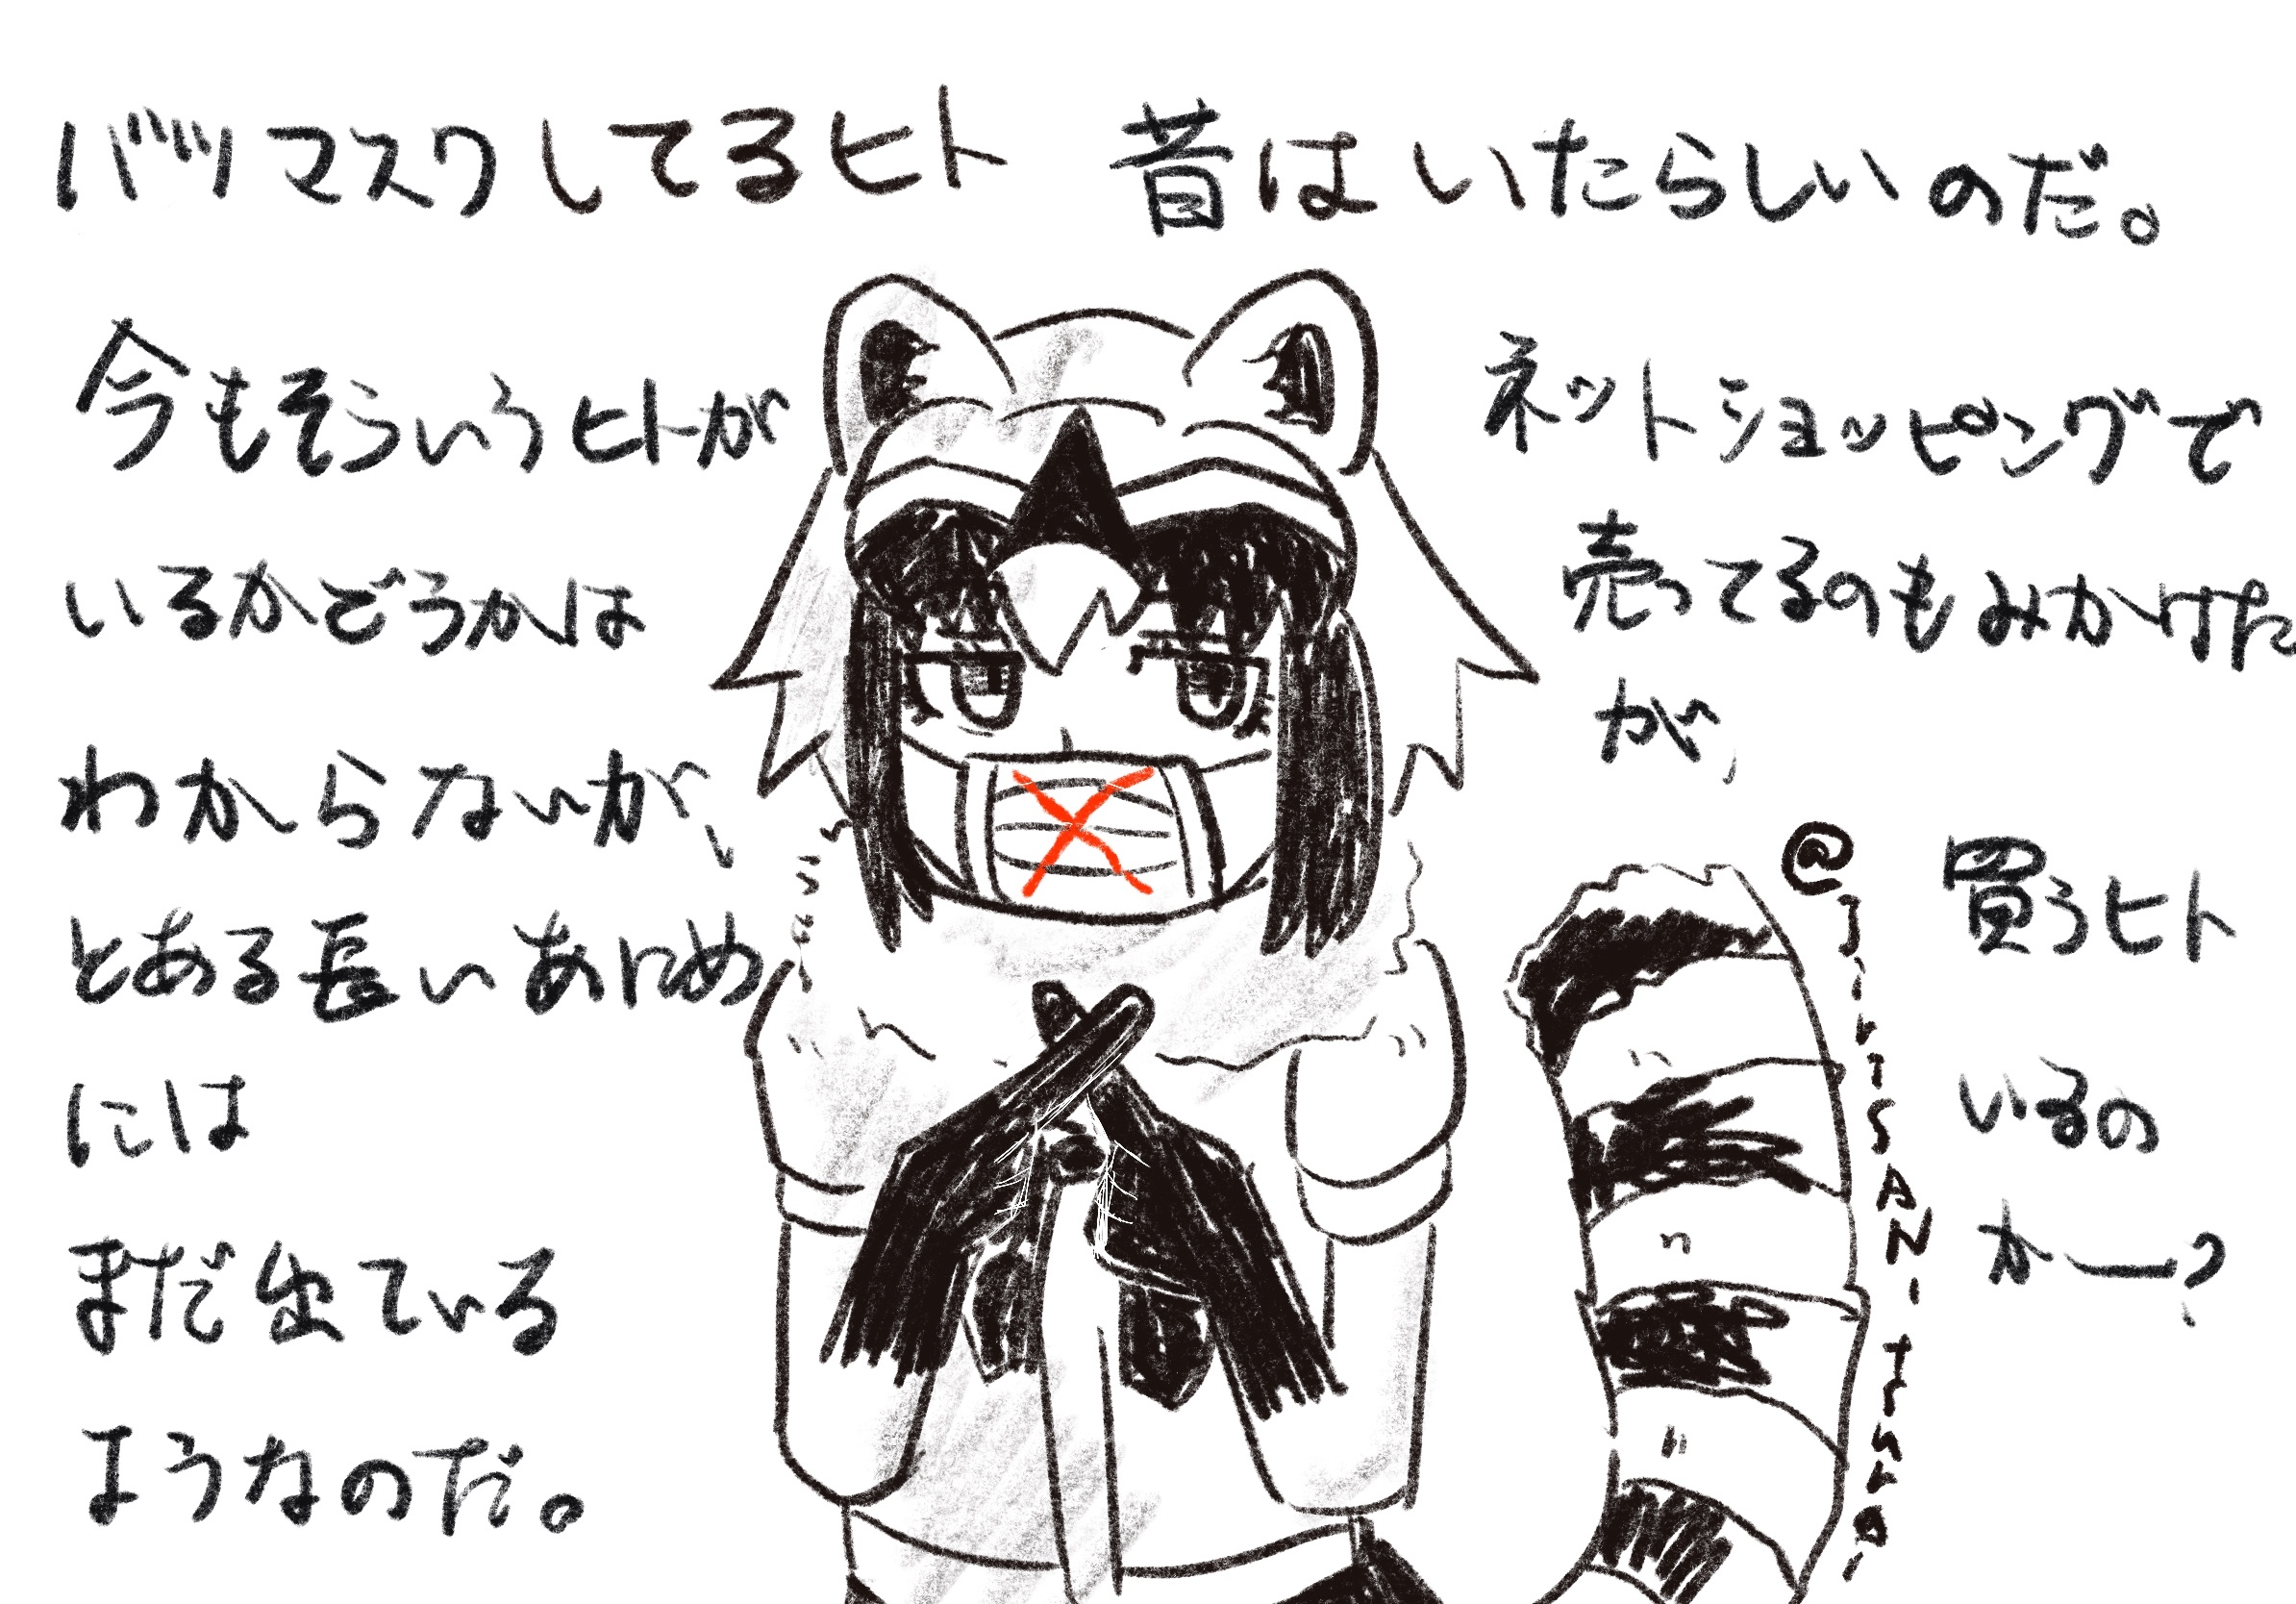 バツマスクしてるヒト 昔はいたらしいのだ。
今もそういうヒトが
いるかどうかは
わからないが、
とある長いあにめ
には
まだ出ている
ようなのだ。
ネットショッピングで
売ってるのもみかけた
が、
買うヒト
いるの
かー?